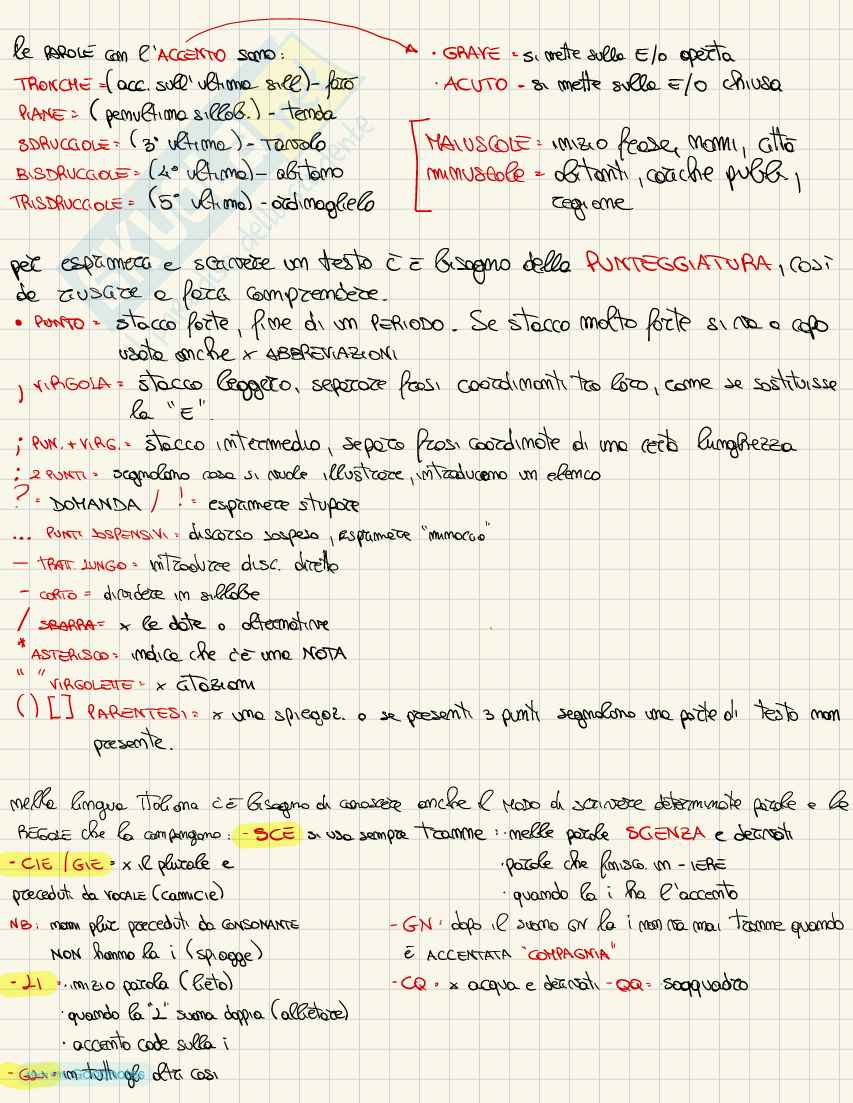 le PAROLE con l'ACCENTO sono:
TRONCHE = (acc. sull'ultima sill) - farò
PIANE = (penultima sillab.) - tenda
SDRUCCIOLE = (3° ultima) - Tavolo
BISDRUCCIOLE = (4° ultima) - abitano
TRISDRUCCIOLE = (5° ultima) - ordinaglielo
· GRAVE = si mette sulla E/O aperta
· ACUTO - si mette sulla E/O chiusa
MAIUSCOLE = inizio frase, nomi, città
MINUSCOLE = abitanti, cariche pubbl,
regione
per esprimera e scrivere un testo c'è bisogno della PUNTEGGIATURA, così
da riusare a farci comprendere.
• PUNTO = stacco forte, fine di un PERIODO. Se stacco molto forte si va a capo
usata anche x ABBREVIAZIONI
, VIRGOLA = stacco leggero, separare frasi coordinanti tra loro, come se sostituisse
la "E".
; PUN. + VIRG. = stacco intermedio, separa frasi coordinate di una certa lunghezza
: 2 PUNTI = segnalano cosa si vuole illustrare, introducono un elenco
? = DOMANDA / ! = esprimere stupore
... PUNTI SOSPENSIVI = discorso sospeso, esprimere "minaccia"
— TRATT. LUNGO = introdurre disc. diretto
- CORTO = dividere in sillabe
/ SBARRA = x le date o alternative
* ASTERISCO = indica che c'è una NOTA
" " VIRGOLETTE = x citazioni
( ) [ ] PARENTESI = x una spiegaz. o se presenti 3 punti segnalano una parte di testo non
presente.
nella lingua italiana c'è bisogno di conoscere anche il MODO di scrivere determinate parole e le
REGOLE che la compongono: - SCE si usa sempre tranne : · nelle parole SCIENZA e derivati
· parole che finisco. in - IERE
· quando la i ha l'accento
- CIE / GIE = x il plurale e
preceduti da VOCALE (camicie)
NB: nomi plur preceduti da CONSONANTE
NON hanno la i (spiagge)
- LI = · inizio parola (lieto)
· quando la "L" suona doppia (allietare)
· accento cade sulla i
- GLI = in tutti gli altri casi
- GN · dopo il suono GN la i non va mai tranne quando
è ACCENTATA "COMPAGNIA"
- CQ = x acqua e derivati - QQ = soqquadro